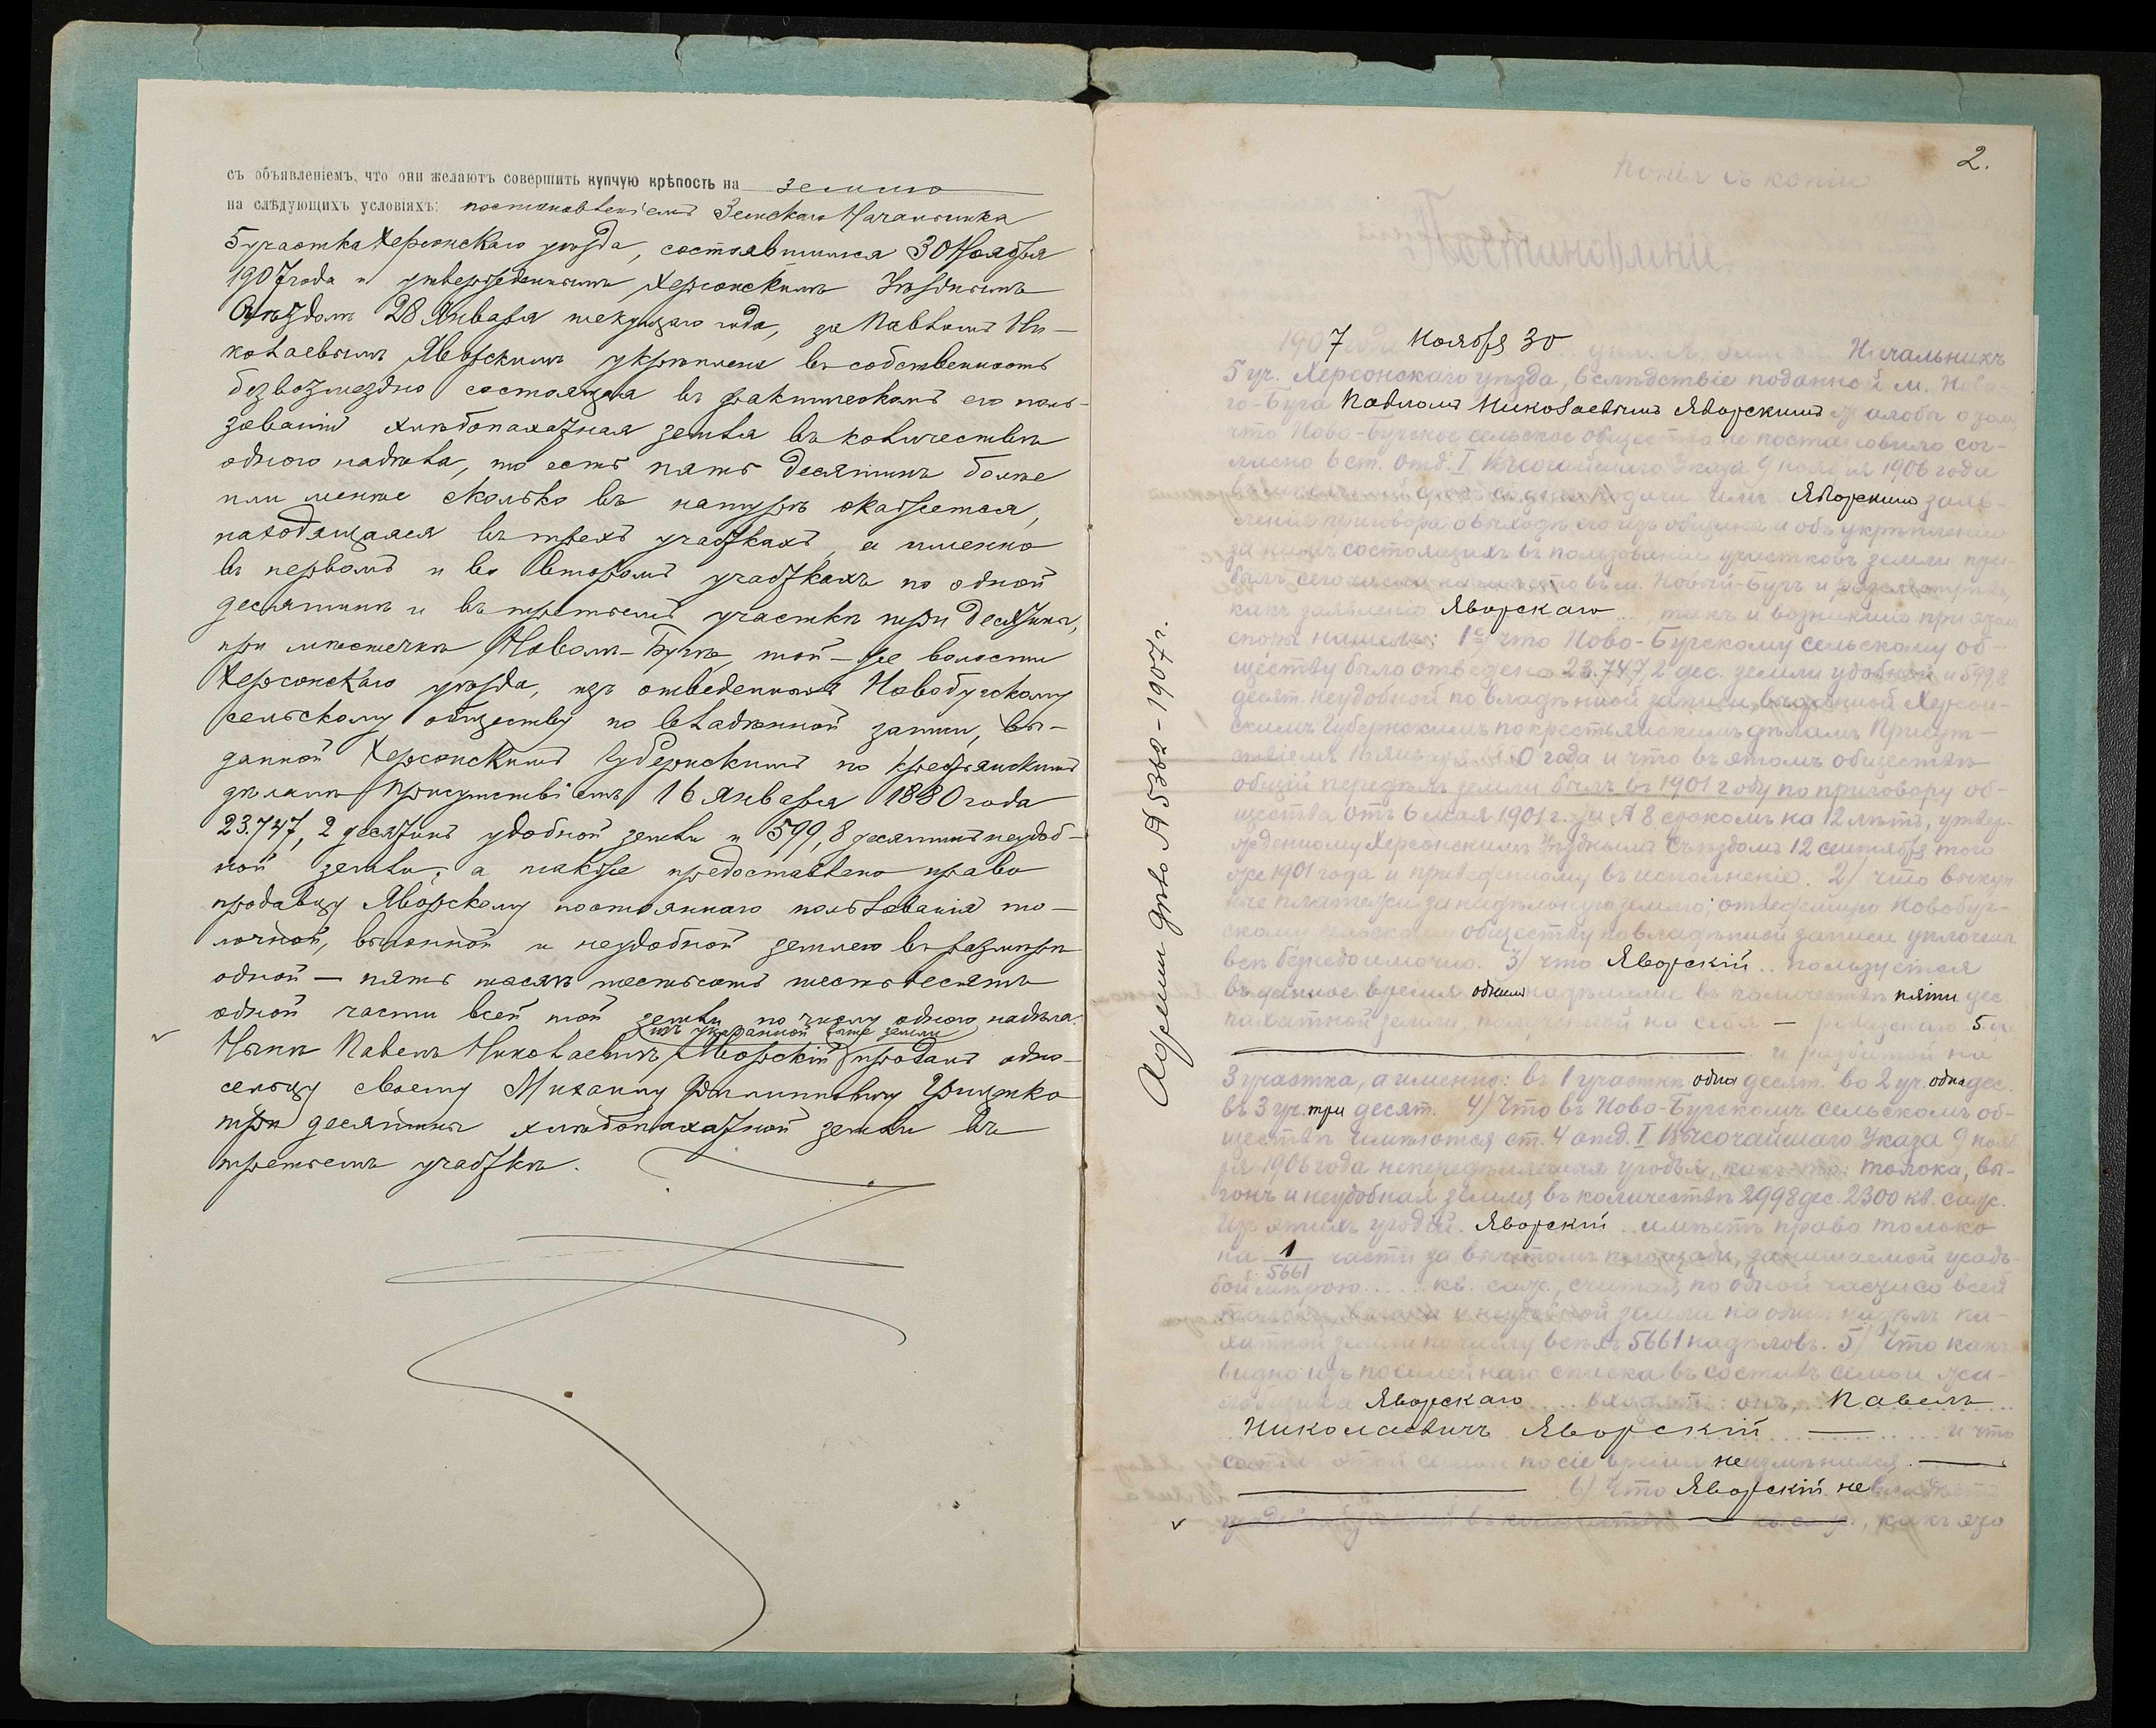 съ объявленіемъ, что они желаютъ совершить купчую крѣпость на землю
на слѣдующихъ условіяхъ: постановленіемъ Земскаго Начальника
5 участка Херсонскаго уѣзда, состоявшимся 30 Ноября
1907 года и утвержденнымъ Херсонскимъ Уѣзднымъ
Съѣздомъ 28 Января текущаго года, за Павломъ Ни-
колаевымъ Яворскимъ укрѣплена въ собственность
безвозмездно состоящая въ фактическомъ его поль-
зованіи хлѣбопахатная земля въ количествѣ
одного надѣла, то есть пять десятинъ болѣе
или менѣе сколько въ натурѣ окажется,
находящаяся въ трехъ участкахъ, а именно
въ первомъ и во второмъ участкахъ по одной
десятинѣ и въ третьемъ участкѣ три десятины,
при мѣстечкѣ Новомъ-Бугѣ, той-же волости
Херсонскаго уѣзда, изъ отведенныхъ Новобугскому
сельскому обществу по владѣнной записи, вы-
данной Херсонскимъ Губернскимъ по крестьянскимъ
дѣламъ Присутствіемъ 16 Января 1880 года
23.747,2 десятинъ удобной земли и 599,8 десятинъ неудоб-
ной земли; а также предоставлено право
продавцу Яворскому постояннаго пользованія то-
лочной, выгонной и неудобной землею въ размѣрѣ
одной — пять тысячъ шестьсотъ шестьдесятъ
одной части всей той земли по числу одного надѣла.
изъ указанной выше земли
Нынѣ Павелъ Николаевичъ Яворскій продалъ одно-
сельцу своему Михаилу Филипповичу Грищенко
три десятины хлѣбопахатной земли въ
третьемъ участкѣ.
2.
Копія съ копіи
Постановленіе.
1907 года Ноября 30 Начальникъ
5 уч. Херсонскаго уѣзда, вслѣдствіе поданной м. Ново-
го-Буга Павломъ Николаевымъ Яворскимъ жалобы о томъ
что Ново-Бугское сельское общество не постановило сог-
ласно 6 ст. отд. I Высочайшаго Указа 9 ноября 1906 года
со дня подачи имъ Яворскимъ заяв-
ленія приговора о выходѣ его изъ общины и объ укрѣпленіи
за нимъ состоящихъ въ пользованіи участковъ земли при-
былъ сего числа въ м. Новый-Бугъ и разсмотрѣвъ
какъ заявленіе Яворскаго такъ и возникшіе при этомъ
споры нашелъ: 1) что Ново-Бугскому сельскому об-
ществу было отведено 23.747,2 дес. земли удобной и 599,8
десят. неудобной по владѣнной записи, выданной Херсон-
скимъ Губернскимъ по крестьянскимъ дѣламъ Присут-
ствіемъ 16 Января 1880 года и что въ этомъ обществѣ
общій передѣлъ земли былъ въ 1901 году по приговору об-
щества отъ 6 мая 1901 г. за № 8 срокомъ на 12 лѣтъ, утвер-
жденному Херсонскимъ Уѣзднымъ Съѣздомъ 12 сентября того
же 1901 года и приведенному въ исполненіе. 2) что выкуп-
ные платежи за надѣльную землю, отведенную Новобуг-
скому сельскому обществу по владѣнной записи уплочены
всѣ безнедоимочно. 3) что Яворскій пользуется
въ данное время однимъ надѣломъ въ количествѣ пяти дес.
пахатной земли 5
и разбитой на
3 участка, а именно: въ 1 участкѣ одна десят. во 2 уч. одна дес.
въ 3 уч. три десят. 4) Что въ Ново-Бугскомъ сельскомъ об-
ществѣ имѣются ст. 4 отд. I Высочайшаго Указа 9 нояб-
ря 1906 года непередѣляемыя угодья, какъ-то: толока, вы-
гонъ и неудобная земля въ количествѣ 2998 дес. 2300 кв. саж.
Изъ этихъ угодій Яворскій имѣетъ право только
на 1/5661 части за вычетомъ площади, занимаемой усадь-
бой мѣрою ..... кв. саж., считая по одной части со всей
толоки, выгона и неудобной земли на одинъ надѣлъ па-
хатной земли по числу всѣхъ 5661 надѣловъ. 5) Что какъ
видно изъ посемейнаго списка въ составъ семьи жа-
лобщика Яворскаго входятъ: онъ, Павелъ
Николаевичъ Яворскій и что
составъ этой семьи по сіе время не измѣнился.
6) Что Яворскій не владѣетъ
какъ это